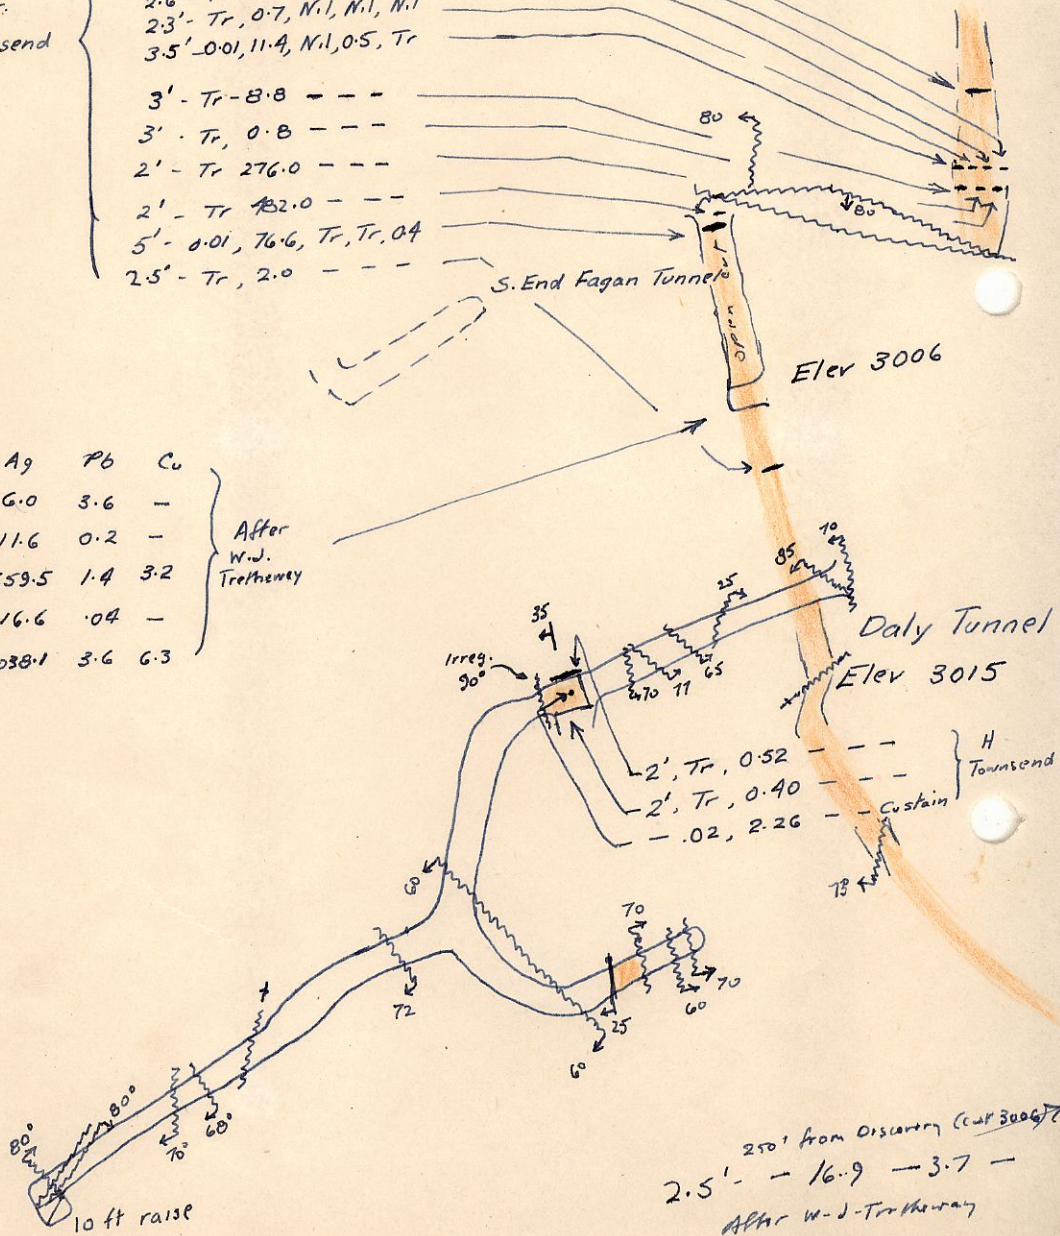 2.3'- Tr, 0.7, N.l, N.l, N.l
send
3.5'-0.01, 11.4, N.l, 0.5, Tr
3' - Tr - 8.8 - - -
3' - Tr, 0.8 - - -
2' - Tr 276.0 - - -
2' - Tr 482.0 - - -
5' - 0.01, 76.6, Tr, Tr, 0.4
2.5' - Tr, 2.0 - - -
80
80
S. End Fagan Tunnel
open
Elev 3006
Ag Pb Cu
6.0 3.6 —
11.6 0.2 —
59.5 1.4 3.2
16.6 .04 —
038.1 3.6 6.3
After
W.J.
Tretheway
70
85
25
Daly Tunnel
Elev 3015
35
Irreg.
90°
70 77 65
2', Tr, 0.52 - - -
2', Tr, 0.40 - - -
- .02, 2.26 - - Custain
H
Townsend
73
60
70
72
25
70
60
60
80°
80°
70°
68°
10 ft raise
250' from Discovery (cut 3006)
2.5' - - 16.9 - 3.7 -
After W-J-Tretheway